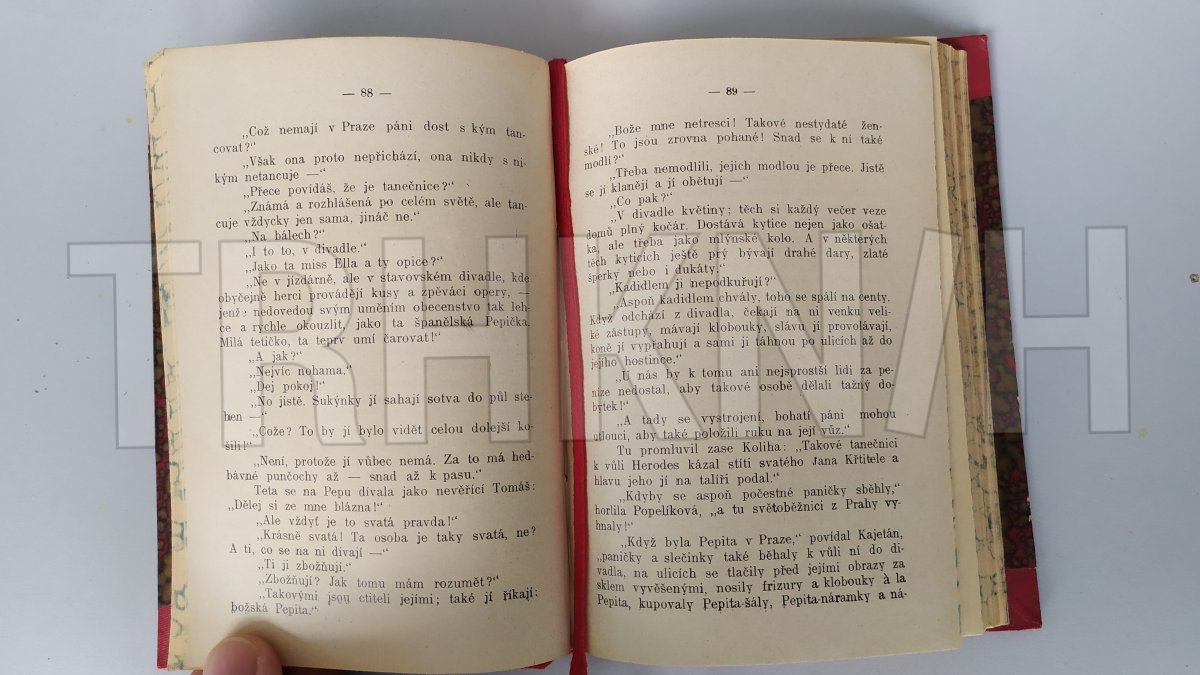 — 88 —
„Což nemají v Praze páni dost s kým tan-
covat?“
„Však ona proto nepřichází, ona nikdy s ni-
kým netancuje —“
„Přece povídáš, že je tanečnice?“
„Známá a rozhlášená po celém světě, ale tan-
cuje vždycky jen sama, jináč ne.“
„Na bálech?“
„I to to, v divadle.“
„Jako ta miss Ella a ty opice?“
„Ne v jízdárně, ale v stavovském divadle, kde
obyčejně herci provádějí kusy a zpěváci opery, —
jenže nedovedou svým uměním obecenstvo tak leh-
ce a rychle okouzlit, jako ta španělská Pepička.
Milá tetičko, ta teprv umí čarovat!“
„A jak?“
„Nejvíc nohama.“
„Dej pokoj!“
„No jistě. Sukýnky jí sahají sotva do půl ste-
hen —“
„Cože? To by jí bylo vidět celou dolejší ko-
šili!“
„Není, protože jí vůbec nemá. Za to má hed-
bávné punčochy až — snad až k pasu.“
Teta se na Pepu dívala jako nevěřící Tomáš:
„Dělej si ze mne blázna!“
„Ale vždyť je to svatá pravda!“
„Krásně svatá! Ta osoba je taky svatá, ne?
A ti, co se na ni dívají —“
„Ti ji zbožňují.“
„Zbožňují? Jak tomu mám rozumět?“
„Takovými jsou ctiteli jejími; také jí říkají:
božská Pepita.“
— 89 —
„Bože mne netresci! Takové nestydaté žen-
ské! To jsou zrovna pohané! Snad se k ní také
modlí?“
„Třeba nemodlili, jejich modlou je přece. Jistě
se jí klanějí a jí obětují —“
„Co pak?“
„V divadle květiny; těch si každý večer veze
domů plný kočár. Dostává kytice nejen jako ošat-
ka, ale třeba jako mlýnské kolo. A v některých
těch kyticích ještě prý bývají drahé dary, zlaté
šperky nebo i dukáty.“
„Kadidlem ji nepodkuřují?“
„Aspoň kadidlem chvály, toho se spálí na centy.
Když odchází z divadla, čekají na ni venku veli-
ké zástupy, mávají klobouky, slávu jí provolávají,
koně jí vypřahují a sami ji táhnou po ulicích až do
jejího hostince.“
„U nás by k tomu ani nejsprostší lidi za pe-
níze nedostal, aby takové osobě dělali tažný do-
bytek!“
„A tady se vystrojení, bohatí páni mohou
utlouci, aby také položili ruku na její vůz.“
Tu promluvil zase Koliha: „Takové tanečnici
k vůli Herodes kázal stíti svatého Jana Křtitele a
hlavu jeho jí na talíři podal.“
„Kdyby se aspoň počestné paničky sběhly,“
horlila Popelíková, „a tu světoběžnici z Prahy vy-
hnaly!“
„Když byla Pepita v Praze,“ povídal Kajetán,
„paničky a slečinky také běhaly k vůli ní do di-
vadla, na ulicích se tlačily před jejími obrazy za
sklem vyvěšenými, nosily frizury a klobouky à la
Pepita, kupovaly Pepita-šály, Pepita-náramky a ná-
TRHKNIH